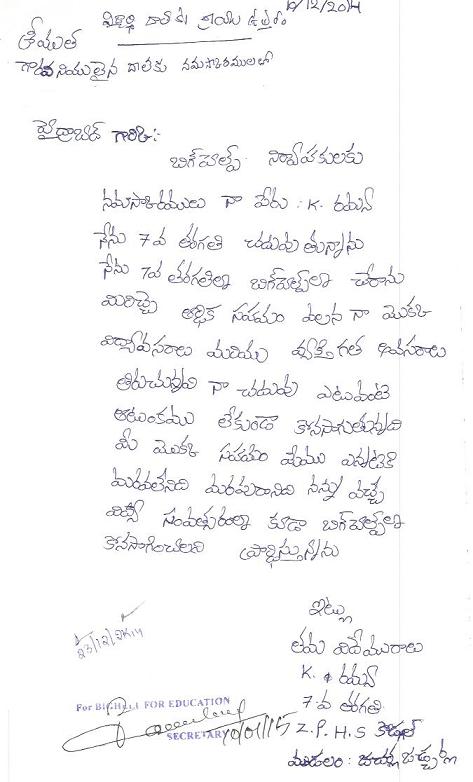 విద్యార్థి దాతకు వ్రాయు ఉత్తరం
/12/2014
శ్రీయుత
గౌరవనీయులైన దాతకు నమస్కారములతో
హైద్రాబాద్ గారికి:-
బిగ్‌హెల్ప్ నిర్వాహకులకు
నమస్కారములు నా పేరు : K. రమేష్
నేను 7వ తరగతి చదువుతున్నాను
నేను 7వ తరగతిలో బిగ్‌హెల్ప్‌లో చేరాను
మీరిచ్చే ఆర్థిక సహాయం వలన నా యొక్క
విద్యావసరాలు మరియు వ్యక్తిగత అవసరాలు
తీరుచున్నవి నా చదువు ఎటువంటి
ఆటంకము లేకుండా కొనసాగుతున్నది
మీ యొక్క సహాయం మేము ఎప్పటికి
మరువలేనిది మరపురానిది నన్ను వచ్చే
విద్యా సంవత్సరంలో కూడా బిగ్‌హెల్ప్‌లో
కొనసాగించాలని ప్రార్థిస్తున్నాను
ఇట్లు
తమ విధేయురాలు
K. రమేష్
7వ తరగతి
Z.P.H.S
మండలం:
23/12/2K14
For BIGHELP FOR EDUCATION
SECRETARY
10/01/15